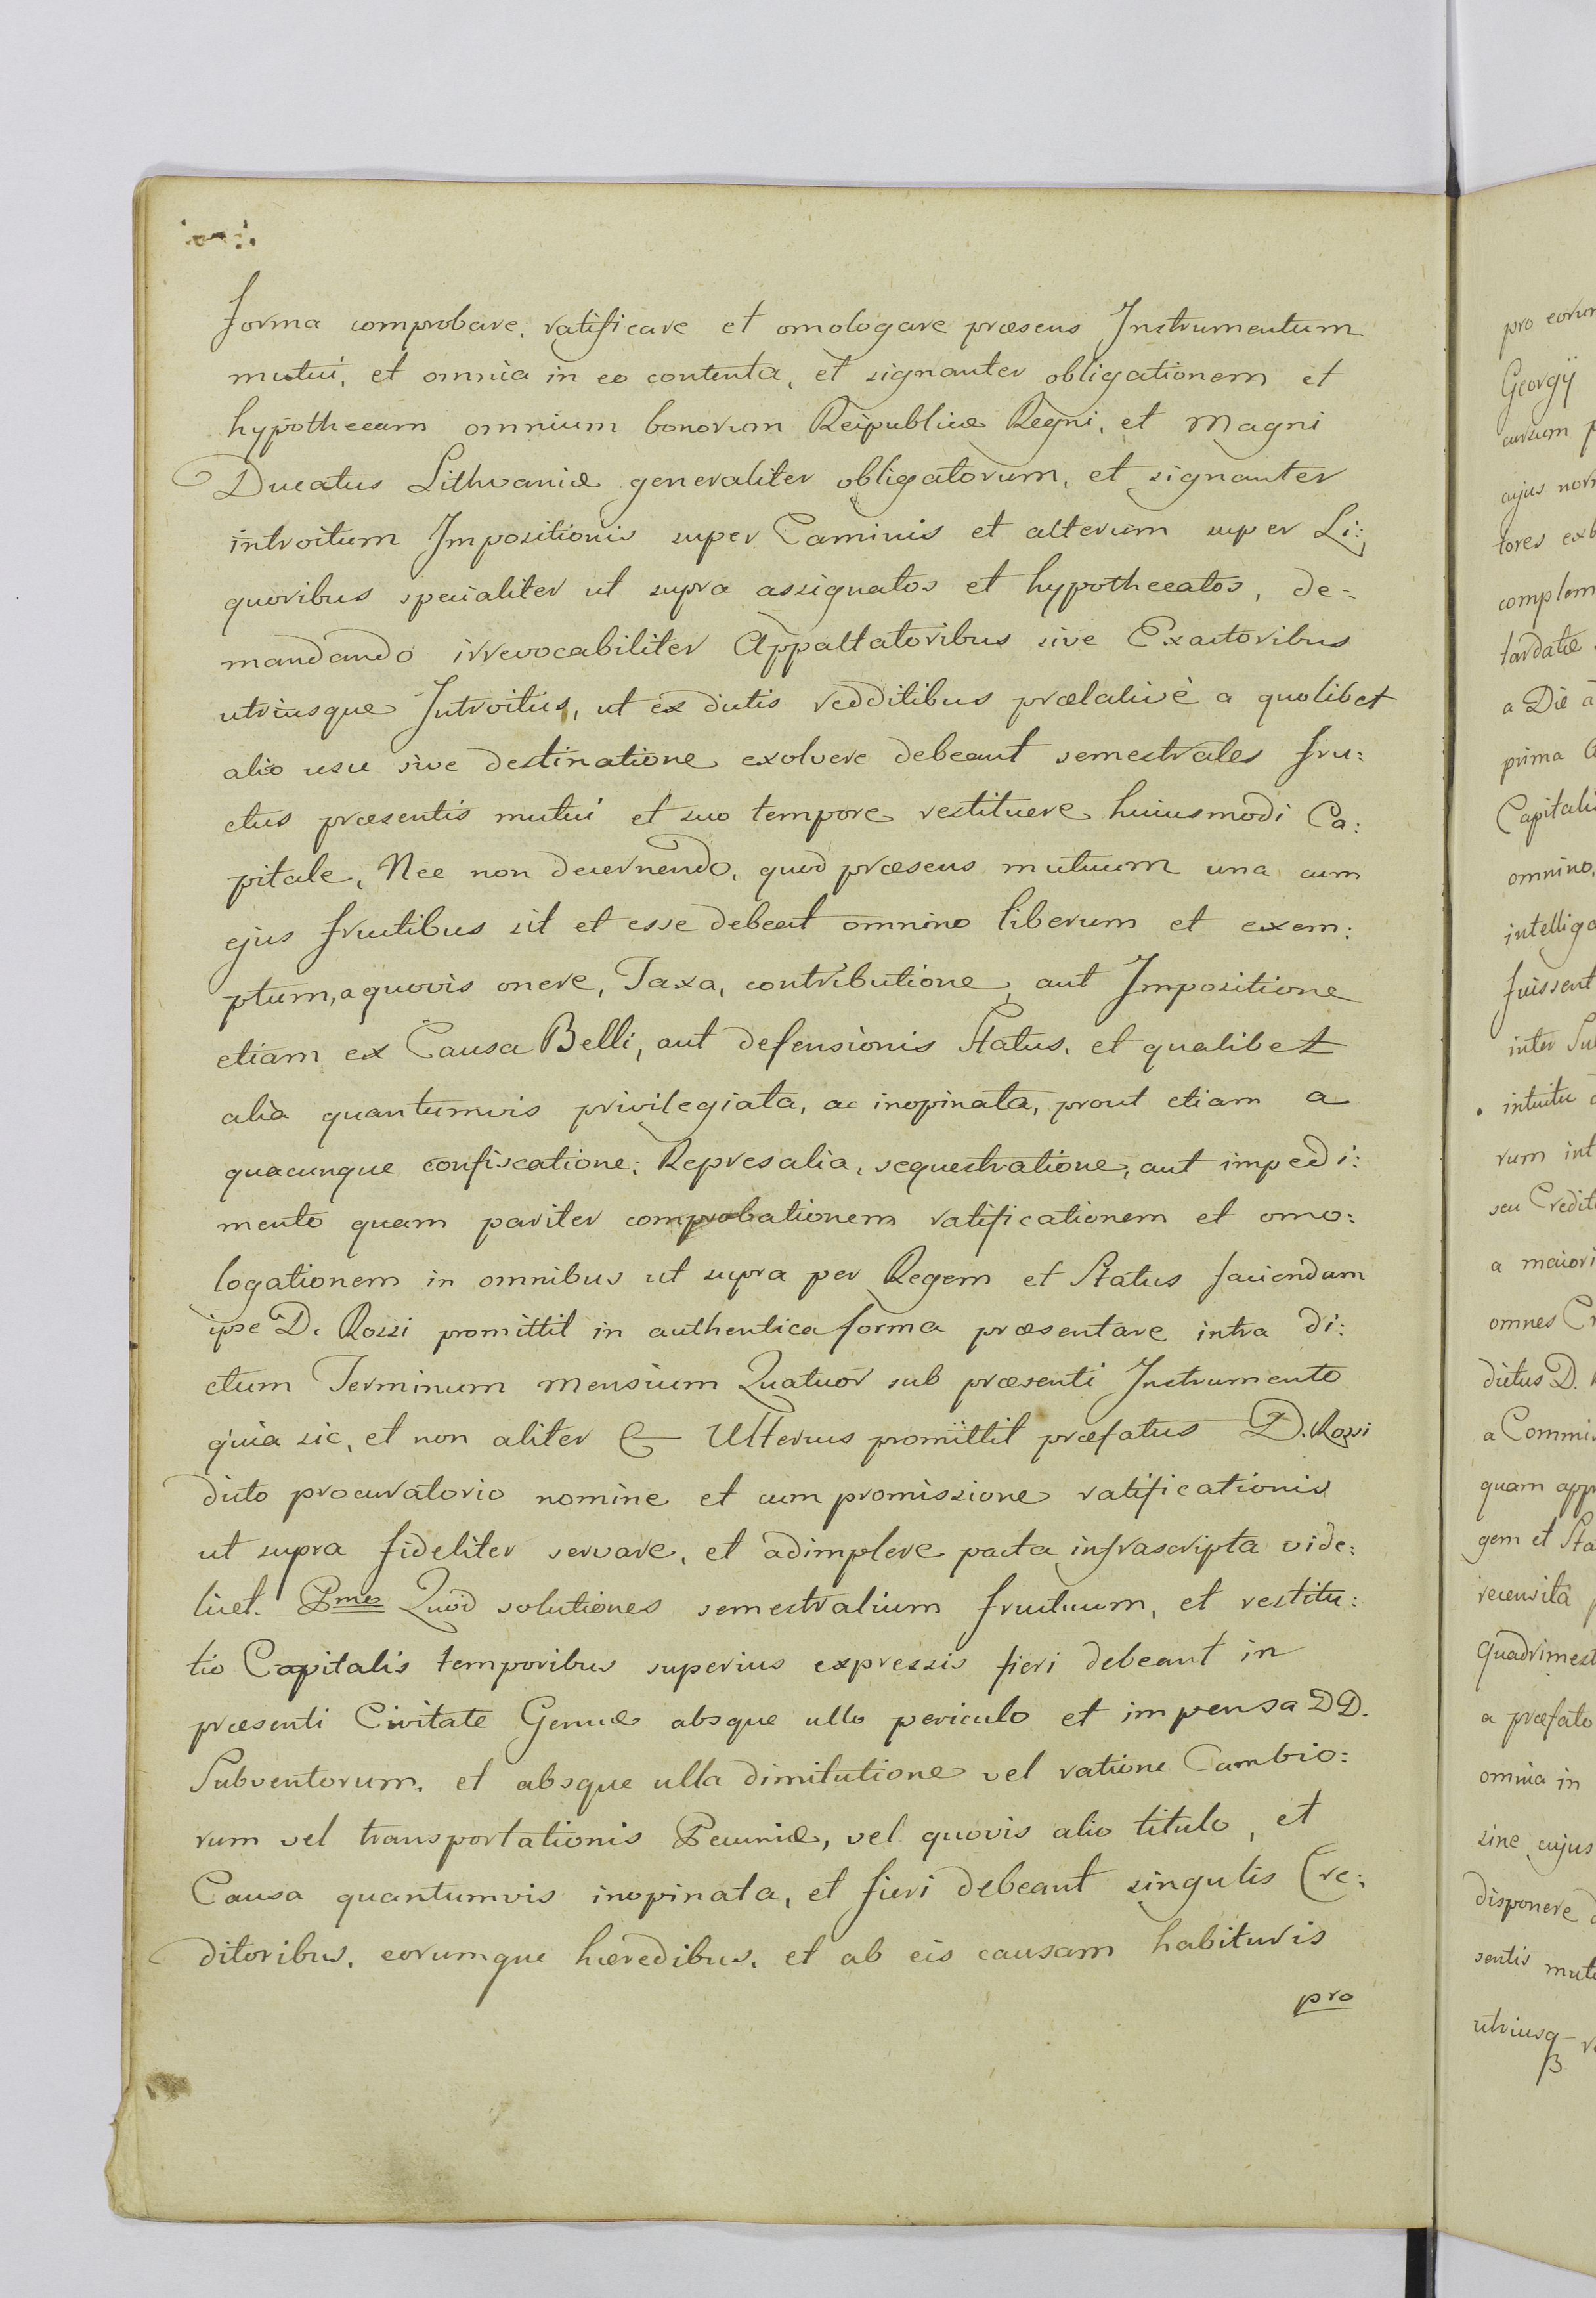 forma comprobare, ratificare et omologare præsens Instrumentum
mutui, et omnia in eo contenta, et signanter obligationem et
hypothecam omnium bonorum Reipublicæ Regni, et Magni
Ducatus Lithvaniæ generaliter obligatorum, et signanter
introitum Impositionis super Caminis et alterum super Li:
quoribus specialiter ut supra assignatos et hypothecatos, de=
mandando irrevocabiliter Appaltatoribus sive Exactoribus
utriusque Introitus, ut ex dictis redditibus prælativè a quolibet
alio usu sive destinatione exolvere debeant semestrales fru:
ctus præsentis mutui et suo tempore restituere huiusmodi Ca:
pitale, Nec non decernendo, quod præsens mutuum una cum
ejus fructibus sit et esse debeat omnino liberum et exem:
ptum, a quovis onere, Taxa, contributione, aut Impositione
etiam ex Causa Belli, aut defensionis Status, et qualibet
alia quantumvis privilegiata, ac inopinata, prout etiam a
quacunque confiscatione, Represalia, sequestratione, aut impedi:
mento quam pariter comprobationem ratificationem et omo:
logationem in omnibus ut supra per Regem et Status faciendam
ipse D. Rossi promittit in authentica forma præsentare intra di:
ctum Terminum mensium Quatuor sub præsenti Instrumento
quia sic, et non aliter & Ulterius promittit præfatus D. Rossi
dicto procuratorio nomine et cum promissione ratificationis
ut supra fideliter servare, et adimplere pacta infrascripta vide:
licet. Pmo Quod solutiones semestralium fructuum, et restitu:
tio Capitalis temporibus superius expressis fieri debeant in
præsenti Civitate Genuæ absque ullo periculo et impensa DD.
Subventorum, et absque ulla dimitutione vel ratione Cambio:
rum vel transportationis Pecuniæ, vel quovis alio titulo, et
Causa quantumvis inopinata, et fieri debeant singulis Cre:
ditoribus, eorumque hæredibus, et ab eis causam habituris
pro
pro eorum
Georgÿ
cursum
cujus
tores
tardatæ
a Die
prima
omnino,
fuissent
inter
intuitu
rum
seu
a
omnes
dictus D.
a
quam
gem et
recensita
a præfato
omnia in
sine cujus
disponere
sentis
utriusq